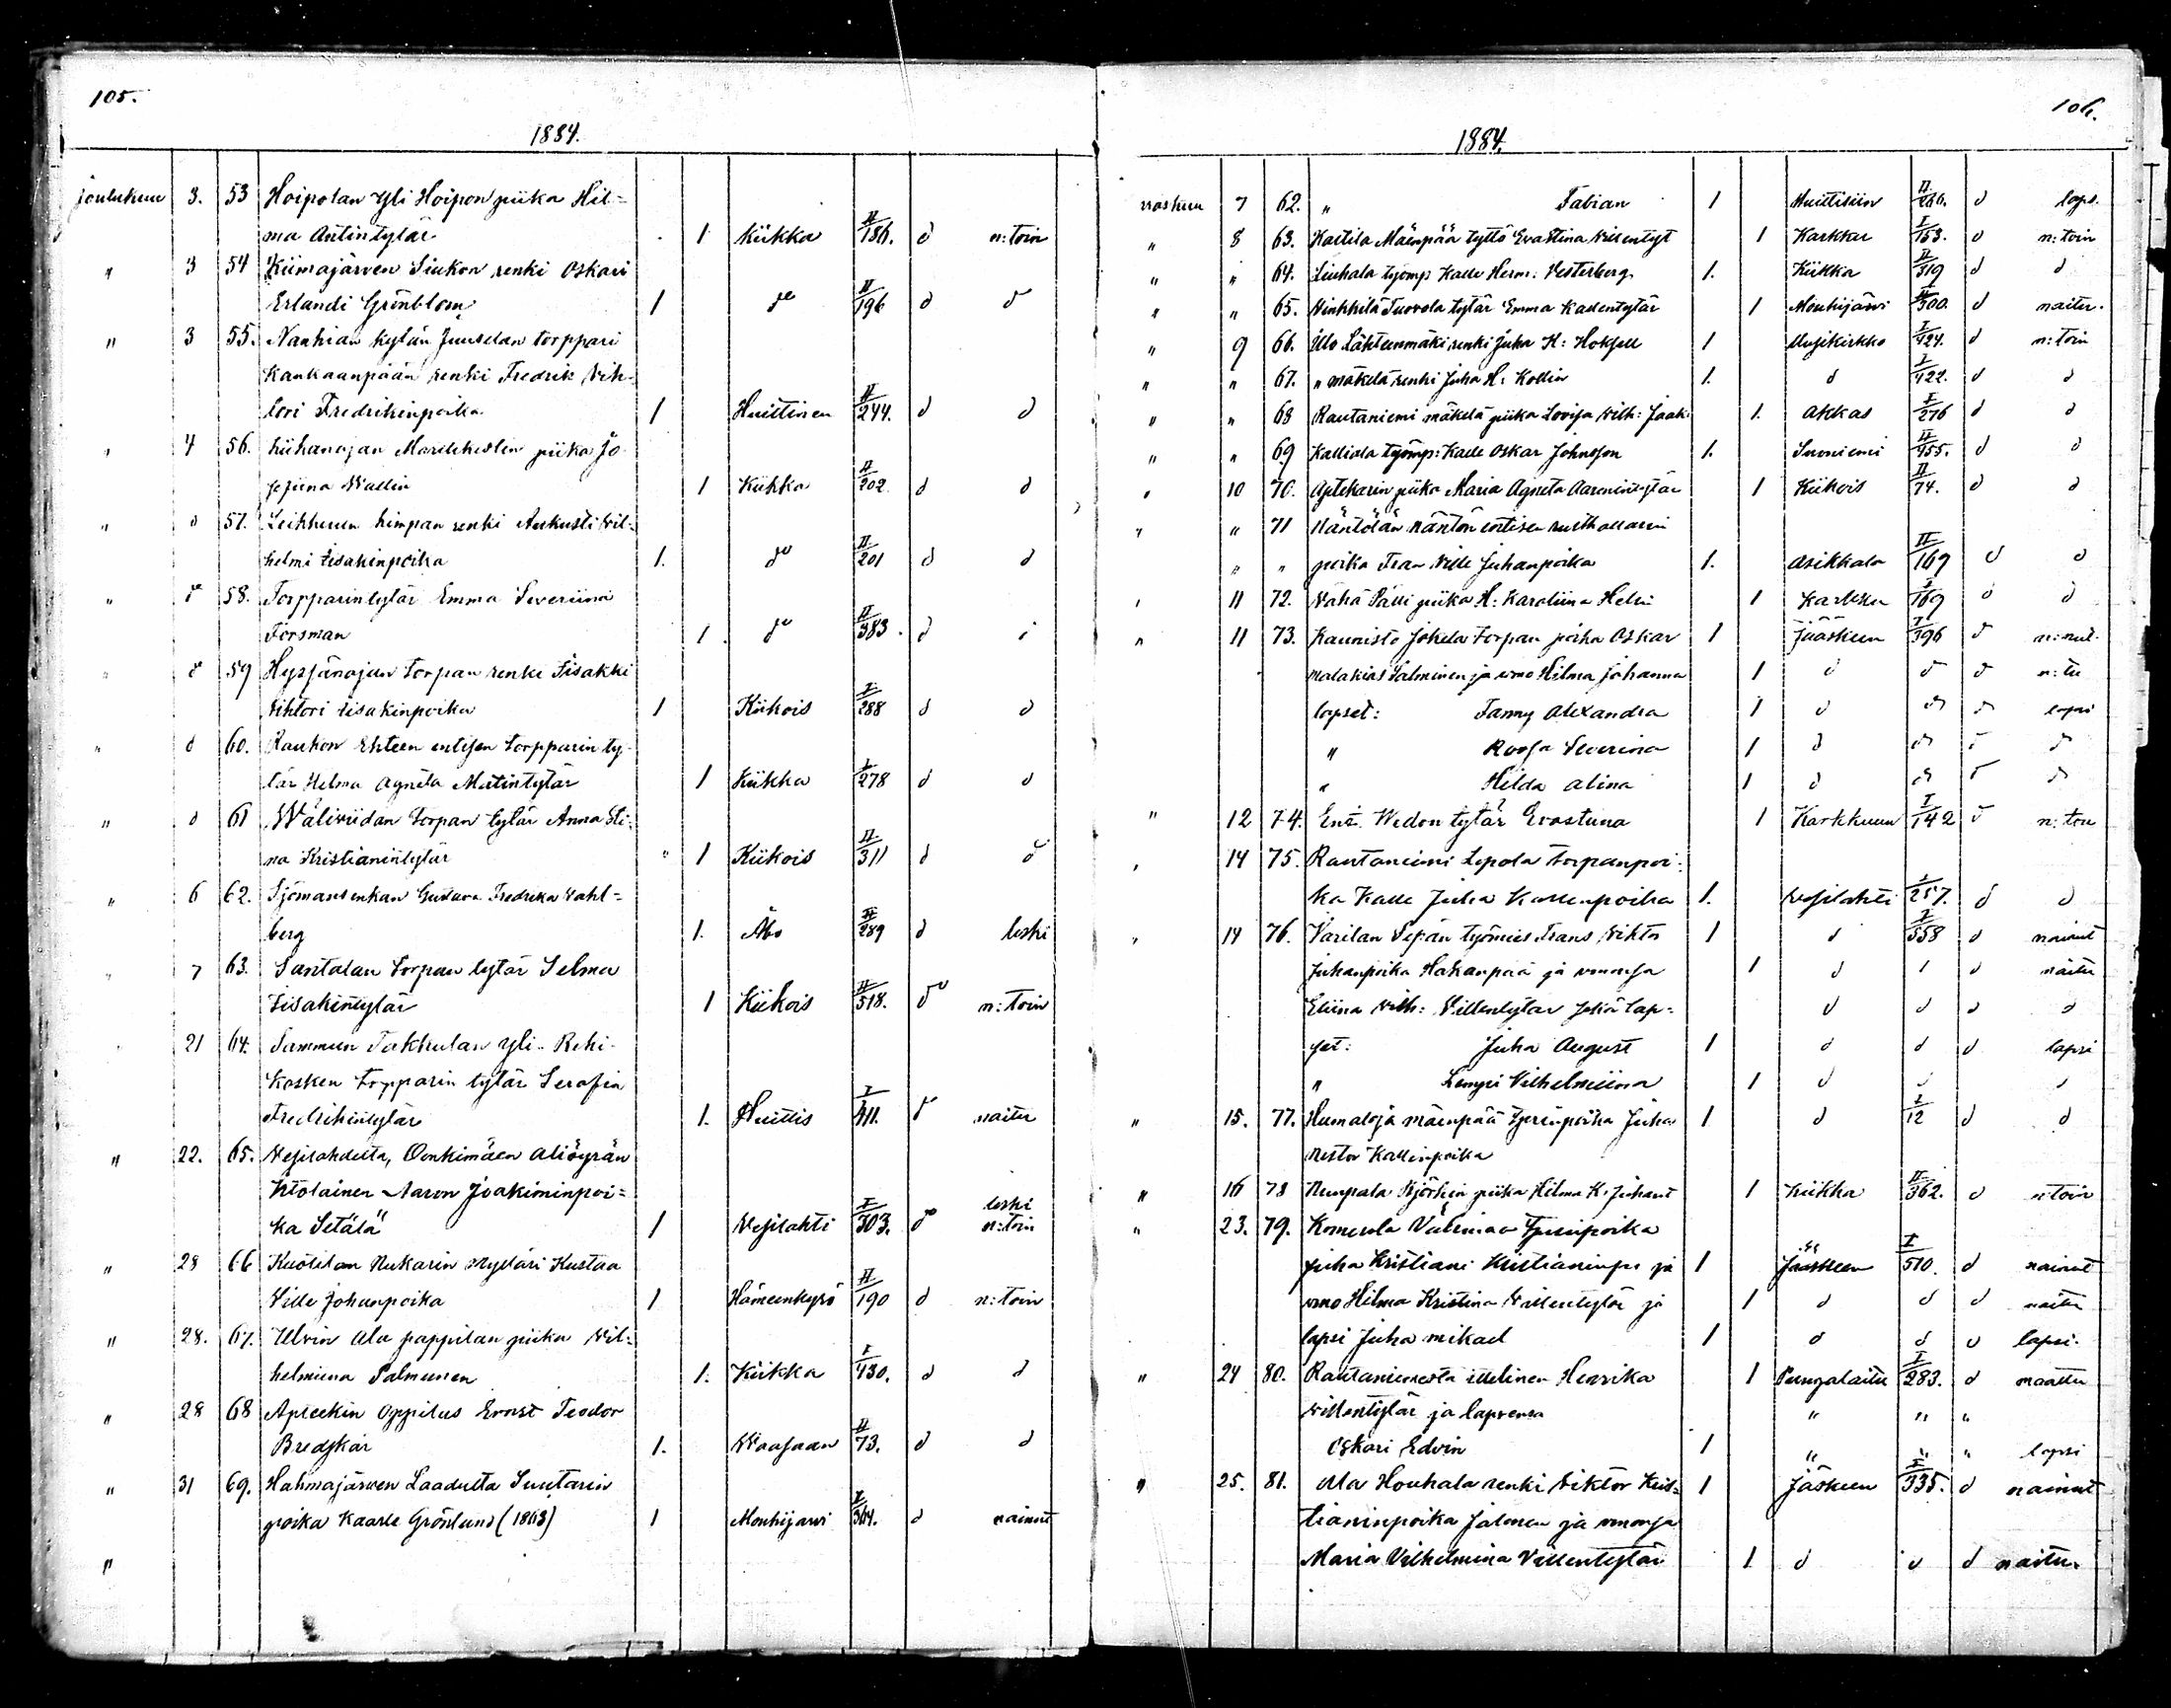 105.
1884.
Joulukuu 3. 53 Hoipolan Yli Hoipon piika Hil=
ma Antintytär 1 Kiikka II/186. d n: toin
" 3 54 Kiimajärven Siukon renki Oskari
Erlandi Grönblom 1 do II/196 d d
" 3 55. Nanhian kylän Juuselan torppari
Kankaanpään renki Fredrik Vih-
tori Fredrikinpoika 1 Huittinen II/244. d d
" 4 56. piika Jo
sefiina Wallin 1 Kiikka II/202 d d
" d 57. Leikkuun Kimpan renki Aukusti Vil=
helmi Iisakinpoika 1. do II/201 d d
" d 58. Torpparintytär Emma Severiina
Forsman 1 do II/383. d
" d 59 torpan renki Iisakki
Vihtori Iisakinpoika 1 Kiikois I/288 d d
" d 60. Raukon entisen torpparin ty-
tär Helma Agneta Matintytär 1 Kiikka I/278 d d
" d 61 Wäliviidan torpan tytär Anna Sti=
na Kristianintytär 1 Kiikois II/311 d d
" 6 62. Sjömansenkan Gustava Fredrika Vahl=
berg 1. Åbo II/289 d leski
" 7 63. Santalan torpan tytär Selma
Iisakintytär 1 Kiikois II/518. do n: toin
21 64. Sammun Takkulan yli- Rehi-
kosken torpparin tytär Serafia
Fredrikintytär 1. Huittis I/411. d naitu
" 22. 65. Vesilahdelta, Onkimäen
Itolainen Aaron Joakiminpoi=
ka Setälä 1 Vesilahti I/303. do leski n: toin
" 28 66 Kuotilan Nukarin mylläri Kustaa
Ville Johanpoika 1 Hämeenkyrö II/190 d n: toin
" 28. 67. Ulvin Ala pappilan piika Vil=
helmiina Salminen 1. Kiikka I/430. d d
" 28 68 Apteekin oppilas Ernst Teodor
Bredskär 1. Waasaan II/73. d d
" 31 69. Hahmajärven Laadulta Suutarin
poika Kaarle Grönlund (1863) 1 Mouhijärvi I/364. d nainut
"
106.
1884.
7 62. " Fabian 1 Huittisiin II/266. d laps.
" 8 63. Kaitila Mäenpää tyttö Evastina Villentyt 1 Karkku I/153. d n: toin
" " 64. Liuhala työmp Kalle Herm: Vesterberg 1. Kiikka II/319 d d
" " 65. Tuovola tytär Emma Kallentytär 1 Mouhijärvi 300. d naitu.
" 9 66. Illo Lähteenmäki renki Juha H: 1 Uusikirkko I/424. d n: toin
" " 67. " mäkelä renki Juha H: Kollin 1. d I/422. d d
" " 68 Rautaniemi mäkelä piika Lovisa Vilh: Jaak: 1. Akkas I/276 d d
" " 69 Kalliala tyomp: Kalle Oskar Johnsson 1. Suoniemi II/455. d d
" 10 70. Aptekarin piika Maria Agneta Aaronintytär 1 Kiikois II/74. d d
" " 71 Näntölän Näntön entisen rusthollarin
" " poika Fran Ville Juhanpoika 1. Asikkala II/169 d d
" 11 72. Vähä Pälli piika H: Karoliina Helin 1 Karkku I/169 d d
" 11 73. Kaunisto Johela torpan poika Oskar 1 Jääskeen I/396 d n: nut.
Malakias Salminen ja vmo Hilma Johanna 1 d d d n: tu
lapset: Fanny Alexandra 1 d d d lapsi
" Roosa Severina 1 d d d d
" Hilda Alina 1 d d d d
" 12 74. Ent. Wedon tytär Evastiina 1 Karkkuun I/142 d n: ton
14 75. Rautaniemi Lepola torpanpoi=
ka Kalle Juha Kallenpoika 1. Vesilahti I/257. d d
14 76. Varilan Sepän työmies Frans Viktor 1 d I/358 d nainut
Juhanpoika Hakanpää ja vmonsa 1 d d d naitu
Eliina Vilh: Villentytär sekä lap= d d d d
set: Juha August 1 d d d lapsi
" Lempi Vilhelmiina 1 d d d
" 15. 77. Humaloja mäenpää poika Juha 1 d I/12 d d
Nestor Kallenpoika
" 16 78 Nunpala piika Hilma K. Juhant 1 Kiikka II/362. d n toin
" 23. 79.
Juha Kristiani Kristianinp: ja 1 Jääskeen I/510. d nainut
vmo Hilma Kristina Villentytär ja 1 d d d naitu
lapsi Juha Mikael 1 d d d lapsi.
" 24 80. Rautaniemestä itellinen Henrika 1 Pungalaitu I/283. d naattu
Villentytär ja lapsensa " " "
Oskari Edvin 1 " " " lapsi
" 25. 81. Ala Houhala renki Viktor Kris= 1 Jäskeen I/335. d nainut
tianinpoika Jalonen ja vmonsa
Maria Vilhelmina Villentytär 1. d d d naitu.